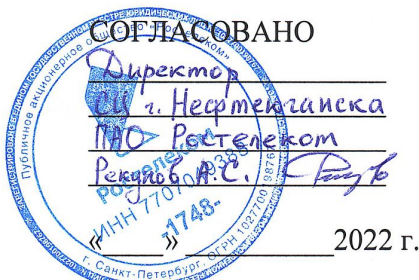 СОГЛАСОВАНО
Директор
СЦ г. Нефтеюганска
ПАО Ростелеком
Рекунов А.С.
«     »             2022 г.
Публичное акционерное общество «Ростелеком»
Ростелеком
ИНН
-1748-
г. Санкт-Петербург, ОГРН 1027700198767